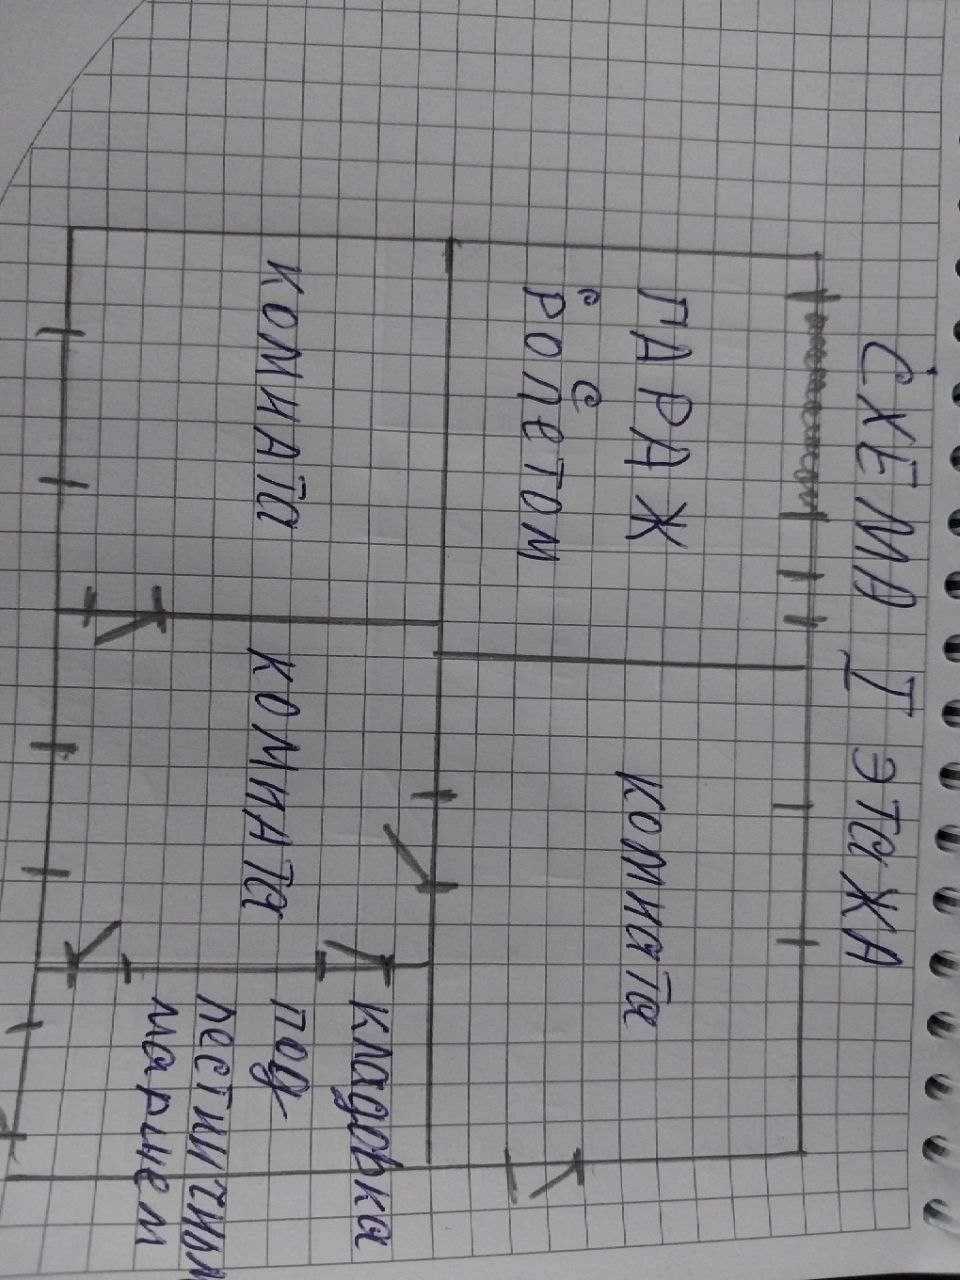 СХЕМА I ЭТаЖА
ГАРАЖ
с
РОЛеТОМ
КОМНата
КОМНАТа
КОМНАТа
кладовка
под
лестничным
маршем